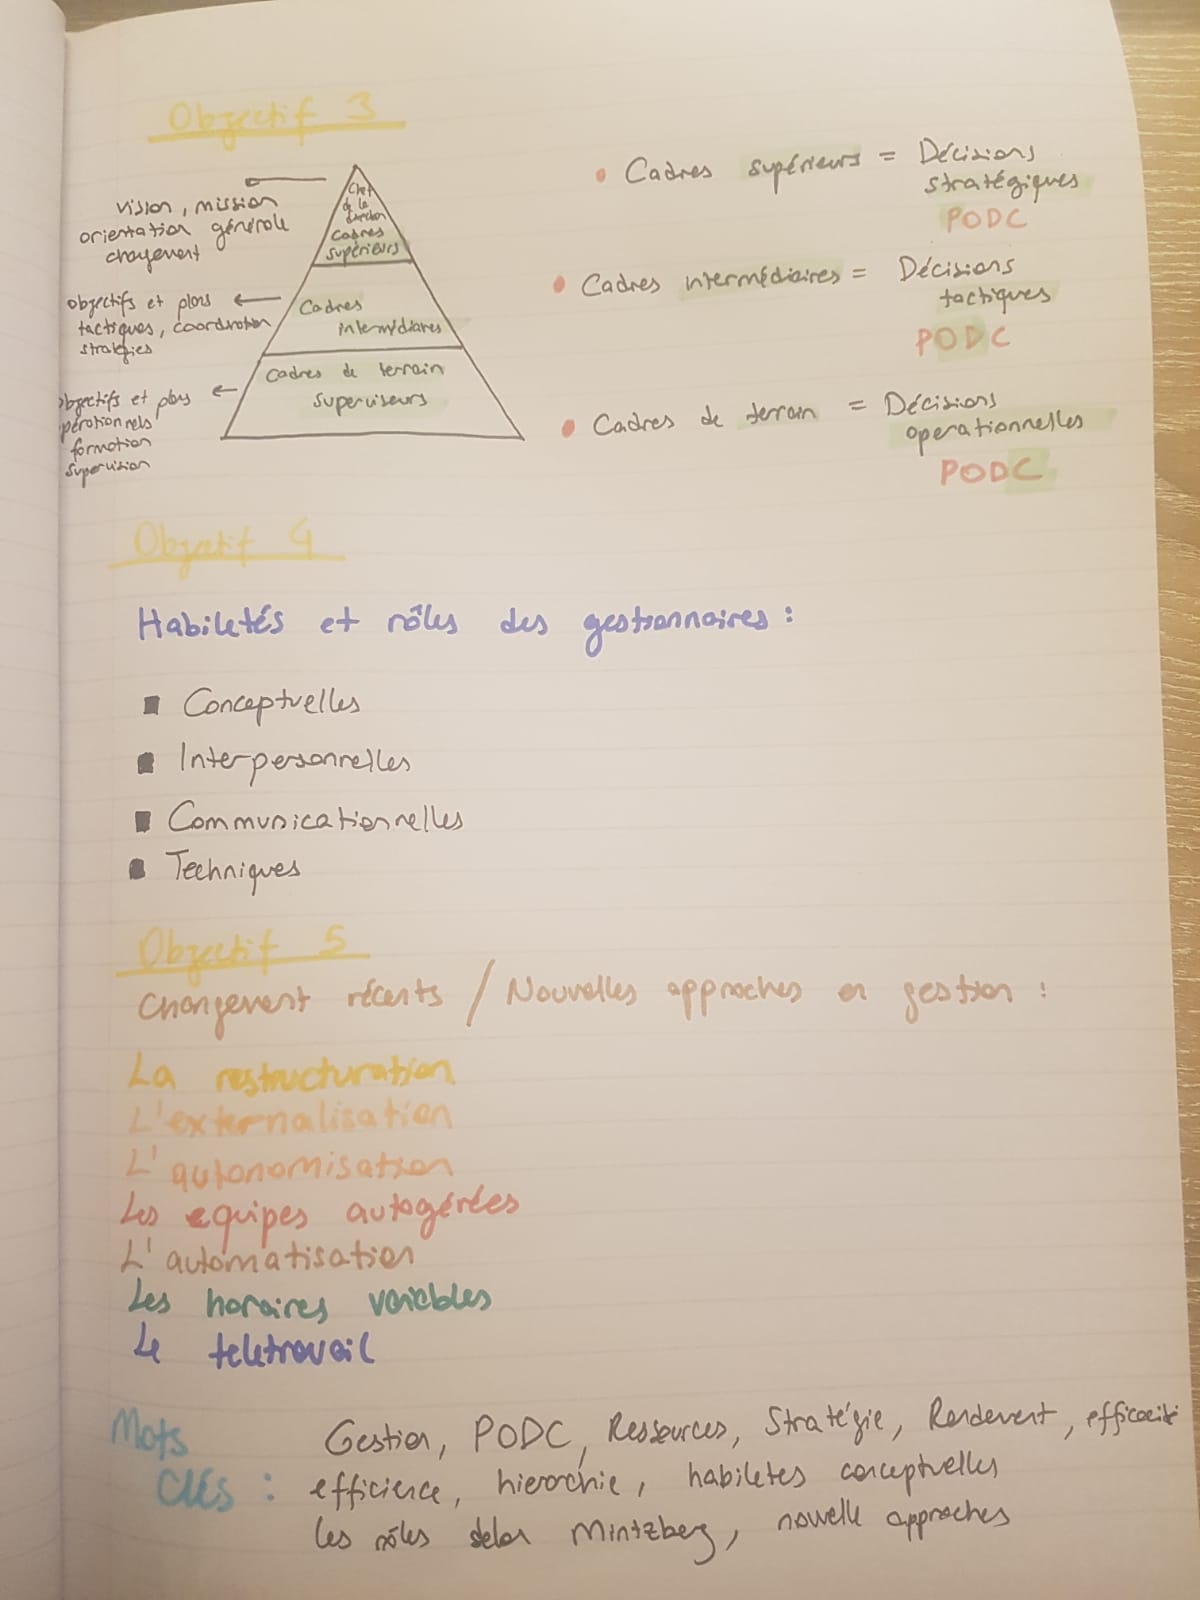 Objectif 3
vision, mission
orientation générale
changement
Chef
de la
direction
Cadres
supérieurs
objectifs et plans
tactiques, coordination
stratégies
Cadres
intermédiaires
objectifs et plans
opérationnels
formation
supervision
Cadres de terrain
superviseurs
• Cadres supérieurs = Décisions
stratégiques
PODC
• Cadres intermédiaires = Décisions
tactiques
PODC
• Cadres de terrain = Décisions
operationnelles
PODC
Objectif 4
Habiletés et rôles des gestionnaires :
▪ Conceptuelles
▪ Interpersonnelles
▪ Communicationnelles
▪ Techniques
Objectif 5
Changement récents / Nouvelles approches en gestion :
La restructuration
L'externalisation
L'autonomisation
Les equipes autogérées
L'automatisation
Les horaires variables
Le teletravail
Mots
Clés :
Gestion, PODC, Ressources, Stratégie, Rendement, efficacité
efficience, hierarchie, habiletes conceptuelles
les rôles selon Mintzberg, nouvelle approches